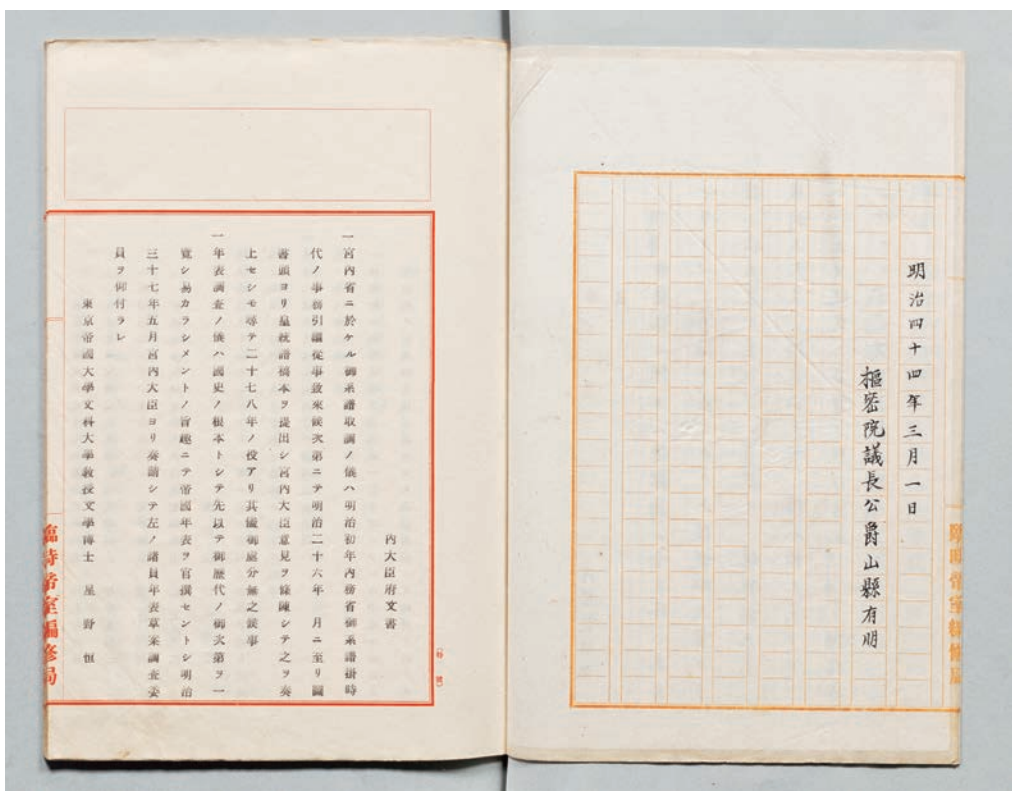 明治四十四年三月一日
樞密院議長公爵山縣有朋
臨時帝室編修局
(秘號)
内大臣府文書
一宮内省ニ於ケル御系譜取調ノ儀ハ明治初年内務省御系譜掛時
代ノ事務引繼從事致來候次第ニテ明治二十六年 月ニ至リ圖
書頭ヨリ皇統譜稿本ヲ提出シ宮内大臣意見ヲ條陳シテ之ヲ奏
上セシモ尋テ二十七八年ノ役アリ其儘御處分無之候事
一年表調査ノ儀ハ國史ノ根本トシテ先以テ御歷代ノ御次第ヲ一
覽シ易カラシメントノ旨趣ニテ帝國年表ヲ官撰セントシ明治
三十七年五月宮内大臣ヨリ奏請シテ左ノ諸員年表草案調査委
員ヲ仰付ラレ
東京帝國大學文科大學敎授文學博士 星野恒
臨時帝室編修局